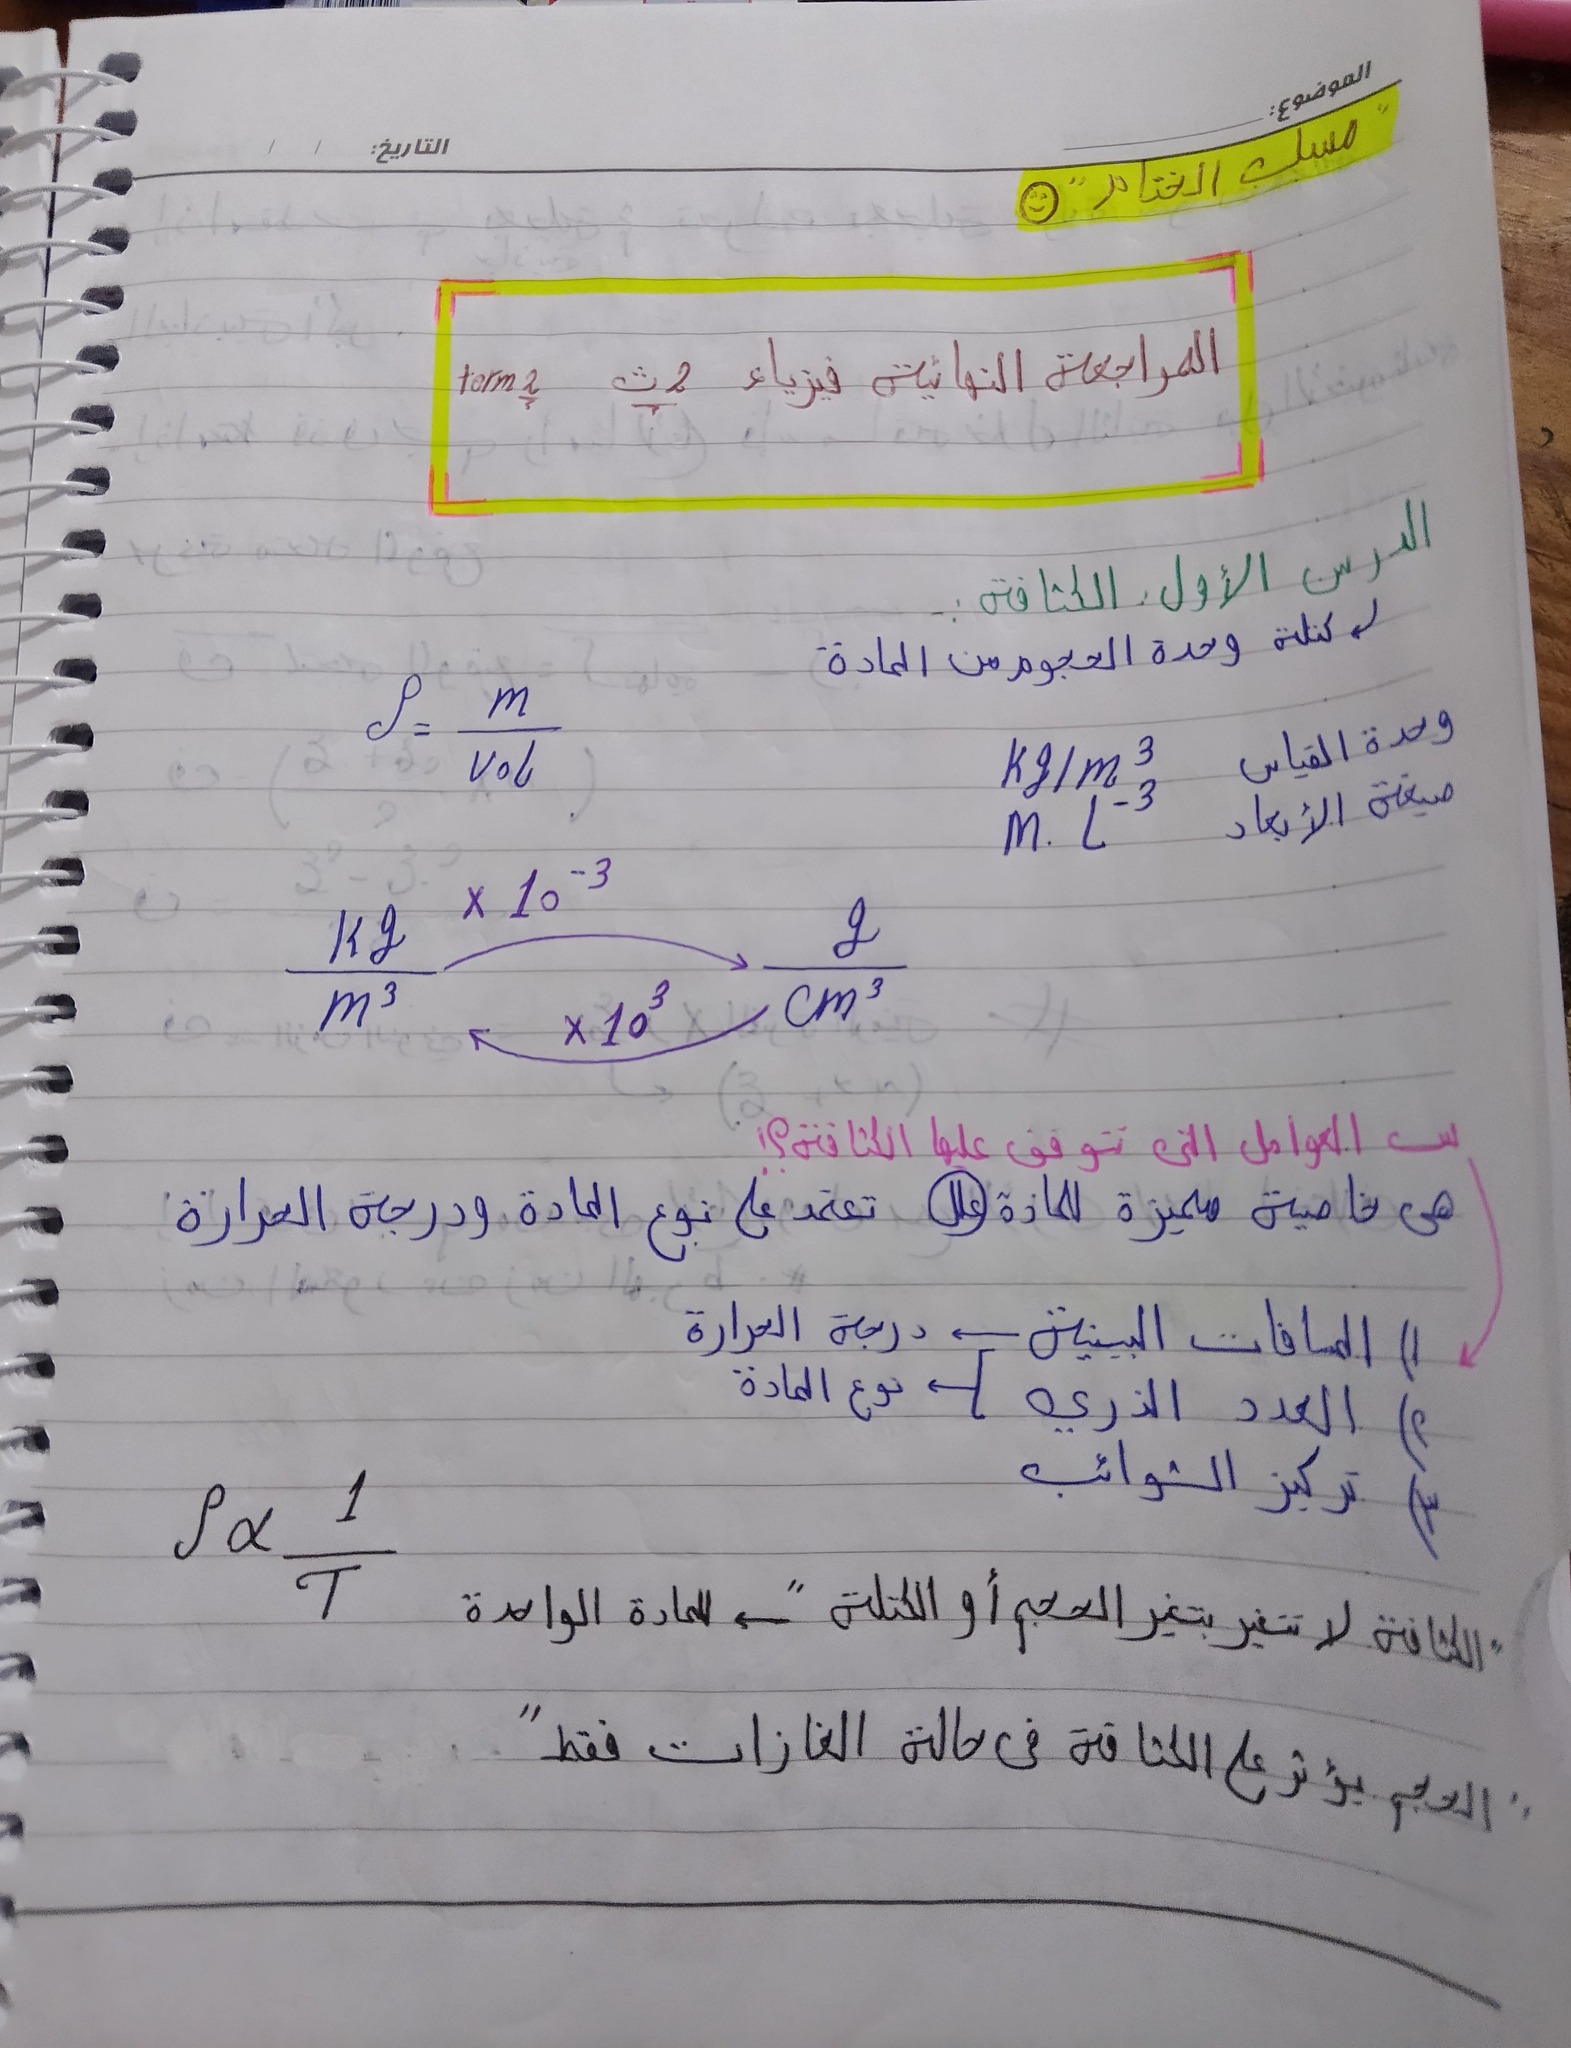 الموضوع:
التاريخ: / /
"مسك الختام"
المراجعة النهائية فيزياء 2ث term2
الدرس الأول: الكثافة:-
كتلة وحدة الحجوم من المادة
ρ = m / Vol
وحدة القياس kg/m³
صيغة الأبعاد M. L⁻³
kg/m³ × 10⁻³ → g/cm³
× 10³ ←
س العوامل التى تتوقف عليها الكثافة؟!
هى خاصية مميزة للمادة (علل) تعتمد على نوع المادة ودرجة الحرارة
١) المسافات البينية ← درجة الحرارة
٢) العدد الذري ← نوع المادة
٣) تركيز الشوائب
ρ ∝ 1/T
"الكثافة لا تتغير بتغير الحجم أو الكتلة" ← للمادة الواحدة
"الحجم يؤثر على الكثافة فى حالة الغازات فقط"